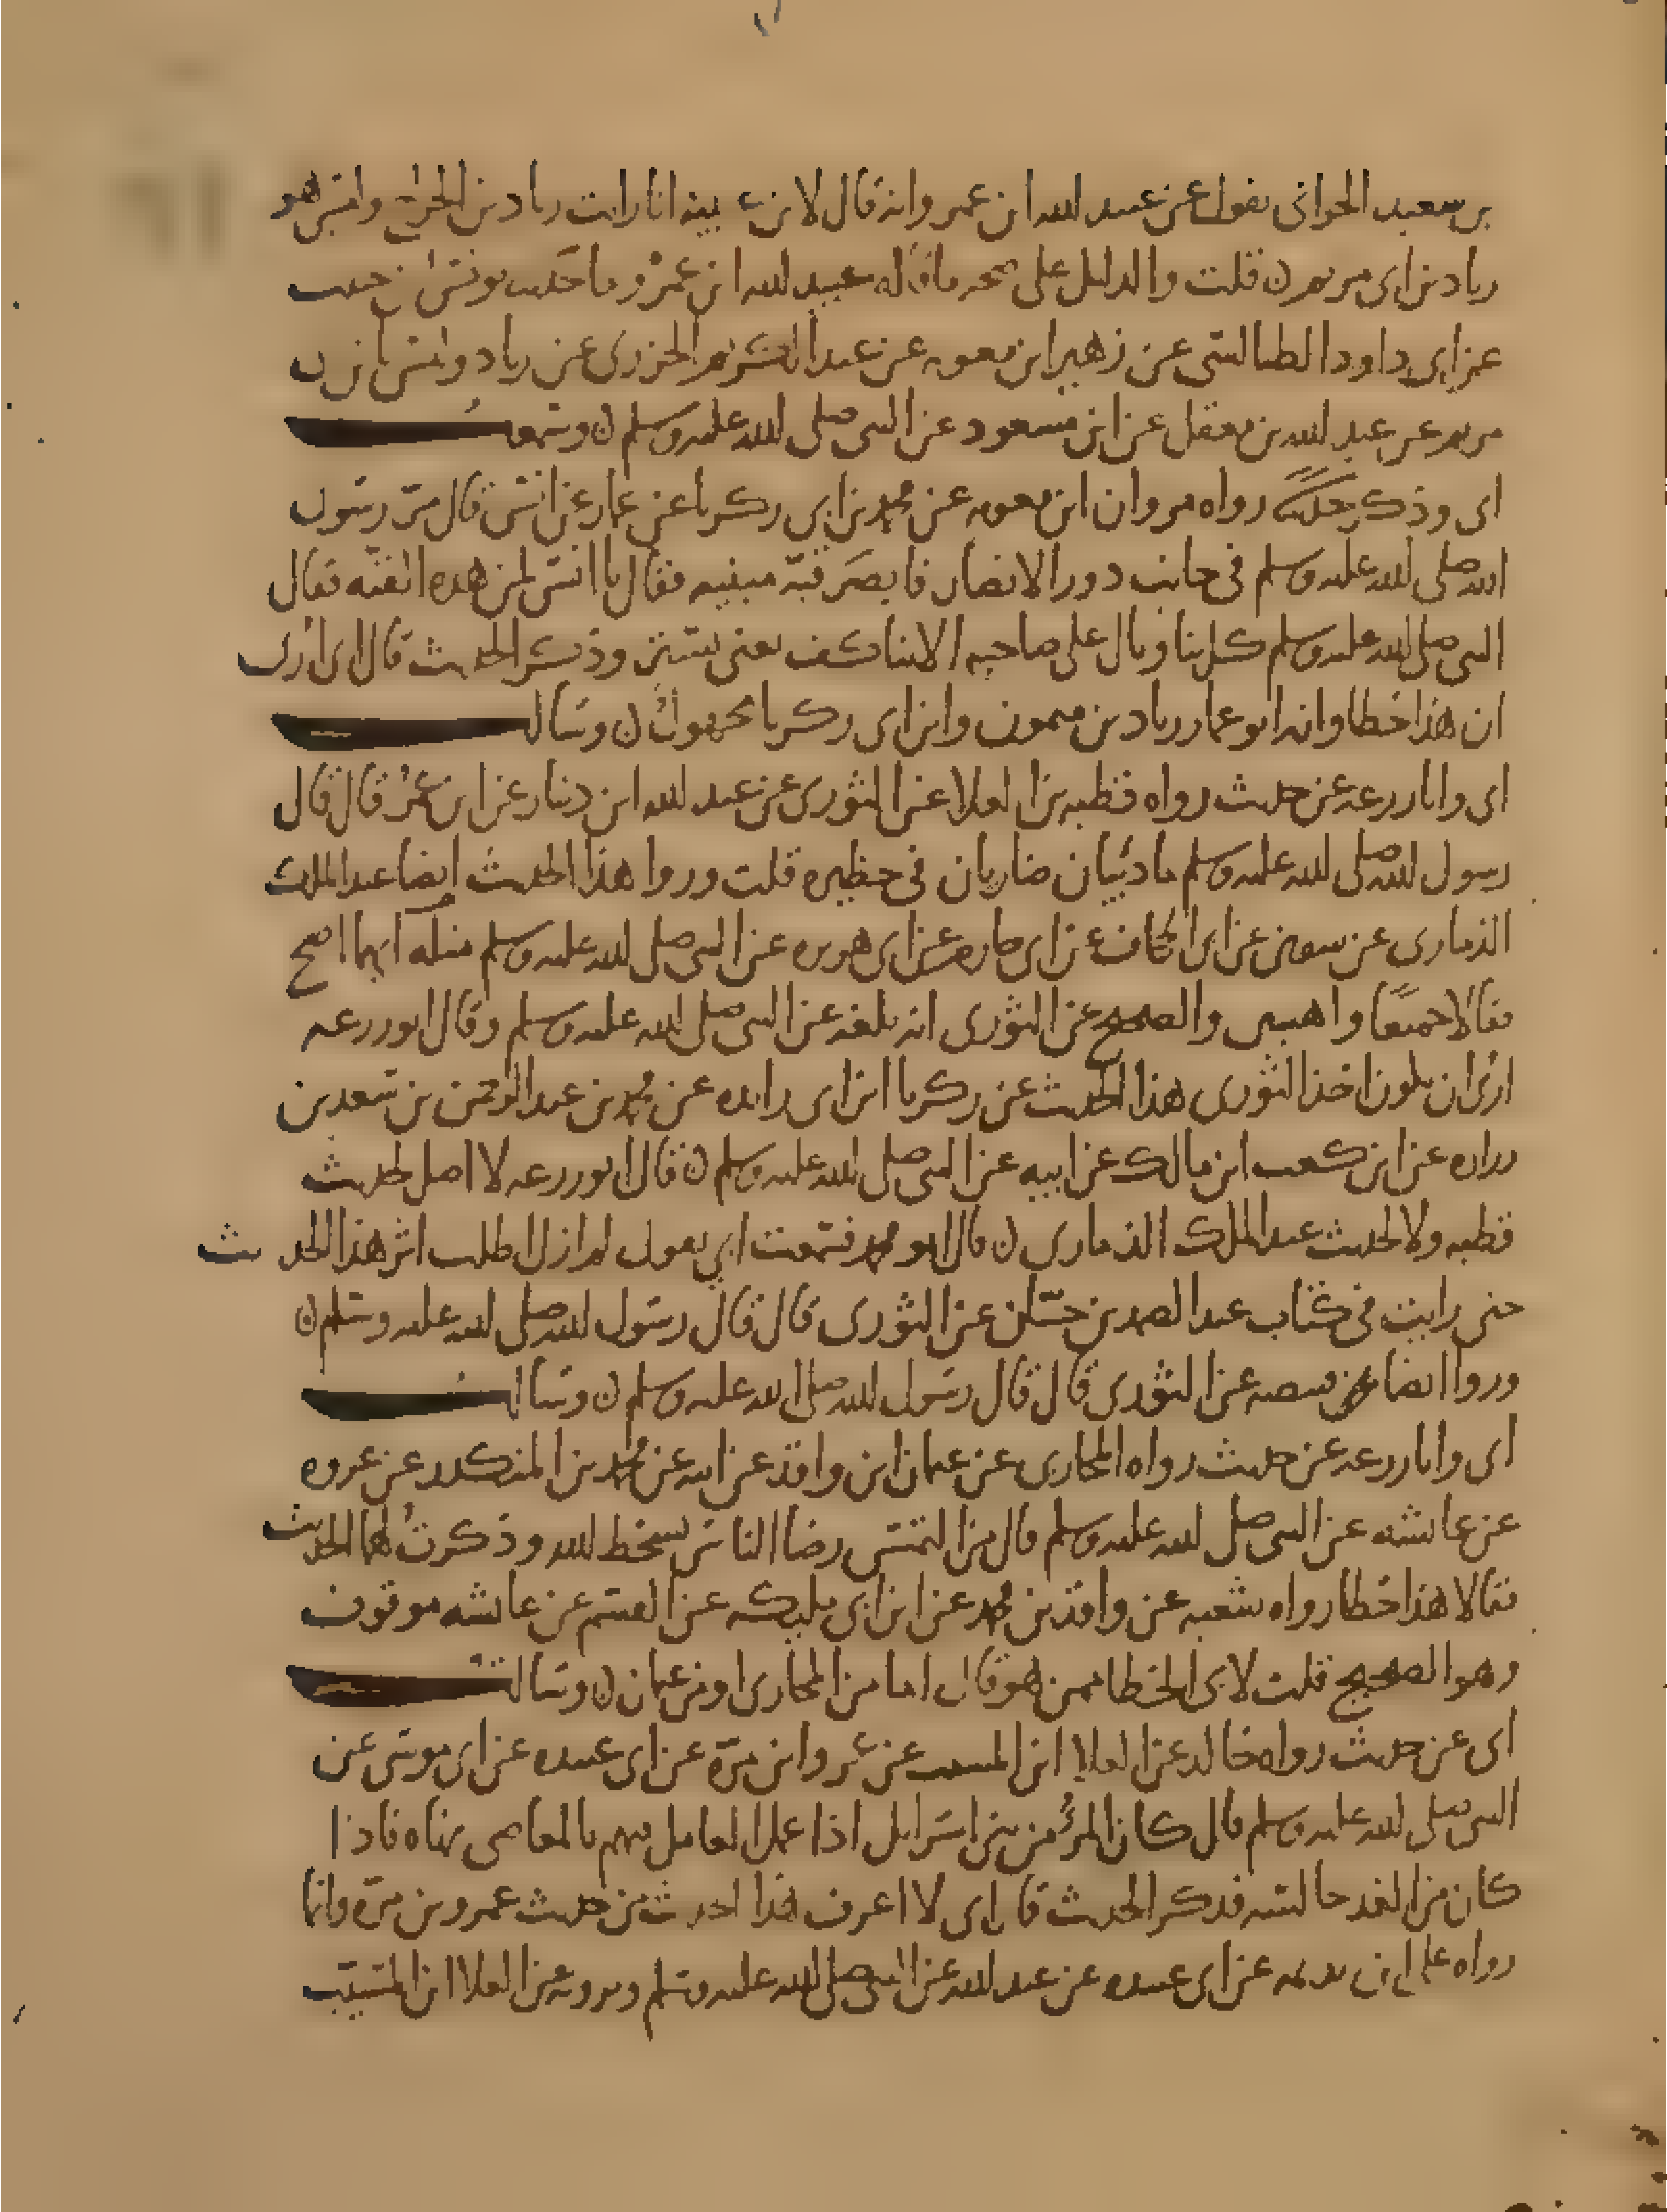 بن سعيد الحراني يقول عن عبيد الله ابن عمرو انه قال لابن عيينه انا رايت زياد بن الجراح وليس هو
زياد بن ابي مريم ن قلت والدليل على صحه ما قاله عبيد الله ابن عمرو ما حدثنا يونس ابن حبيب
عن ابي داود الطيالسي عن زهير ابن معويه عن عبد الكريم الجزري عن زياد وليس بابن ابي
مريم عن عبد الله بن معقل عن ابن مسعود عن النبي صلى الله عليه وسلم ن وسمعت
ابي وذكر حديثا رواه مروان ابن معويه عن محمد بن ابي زكريا عن عمار عن انس قال مر رسول
الله صلى الله عليه وسلم في جانب دور الانصار فابصر قبة مبنيه فقال يا انس لمن هذه القبه فقال
النبي صلى الله عليه وسلم كل بنا وبال على صاحبه الا بنا كف يعني بستين وذكر الحديث قال ابي ارى
ان هذا خطا وانه ابو عمار زياد بن ميمون وابن ابي زكريا مجهول ن وسالت
ابي وابا زرعه عن حديث رواه قطبه بن العلا عن الثوري عن عبد الله ابن دينار عن ابن عمر قال قال
رسول الله صلى الله عليه وسلم ما ذئبان ضاريان في حظيره قلت وروا هذا الحديث ايضا عبد الملك
الذماري عن سفين عن ابي الجحاف عن ابي حازم عن ابي هريره عن النبي صلى الله عليه وسلم مثله ايهما اصح
فقالا جميعا واهيين والصحيح عن الثوري انه بلغه عن النبي صلى الله عليه وسلم وقال ابو زرعه
ارى ان يكون اخذ الثوري هذا الحديث عن زكريا ابن ابي زايده عن محمد بن عبد الرحمن بن سعد بن
زراره عن ابن كعب ابن مالك عن ابيه عن النبي صلى الله عليه وسلم ن قال ابو زرعه لا اصل لحديث
قطبه ولا لحديث عبد الملك الذماري ن قال ابو محمد فسمعت ابي يقول لم ازل اطلب اثر هذا الحديث
حتى رايت في كتاب عبد الصمد بن حسان عن الثوري قال قال رسول الله صلى الله عليه وسلم ن
وروا ايضا عن قبيصه عن الثوري قال قال رسول الله صلى الله عليه وسلم ن وسالت
ابي وابا زرعه عن حديث رواه المحاربي عن عثمان ابن واقد عن ابيه عن محمد بن المنكدر عن عروه
عن عائشه عن النبي صلى الله عليه وسلم قال من التمس رضا الناس بسخط الله وذكرت لهما الحديث
فقالا هذا خطا رواه شعبه عن واقد بن محمد عن ابن ابي مليكه عن القسم عن عائشه موقوف
وهو الصحيح قلت لابي الخطا ممن هو قال اما من المحاربي او من عثمان ن وسالت
ابي عن حديث رواه خالد عن العلا ابن المسيب عن عمرو ابن مرة عن ابي عبيده عن ابي موسى عن
النبي صلى الله عليه وسلم قال كان المرؤ من بني اسرايل اذا عمل العامل فيهم بالمعاصي نهاه فاذا
كان من الغد جالسه فذكر الحديث قال ابي لا اعرف هذا الحديث من حديث عمرو بن مرة وانما
رواه علي ابن بذيمه عن ابي عبيده عن عبد الله عن النبي صلى الله عليه وسلم ويرويه عن العلا ابن المسيب